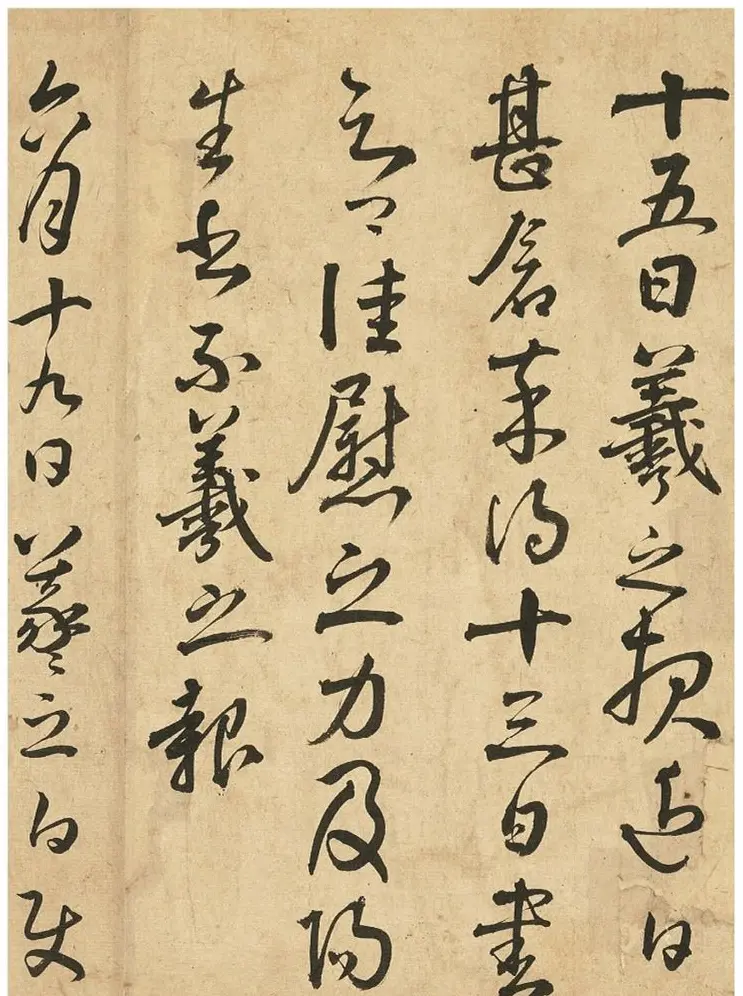 十五日羲之頓近日
甚倉卒得十三日書
佳慰之力及陽
生不羲之報
六月十九日羲之白使